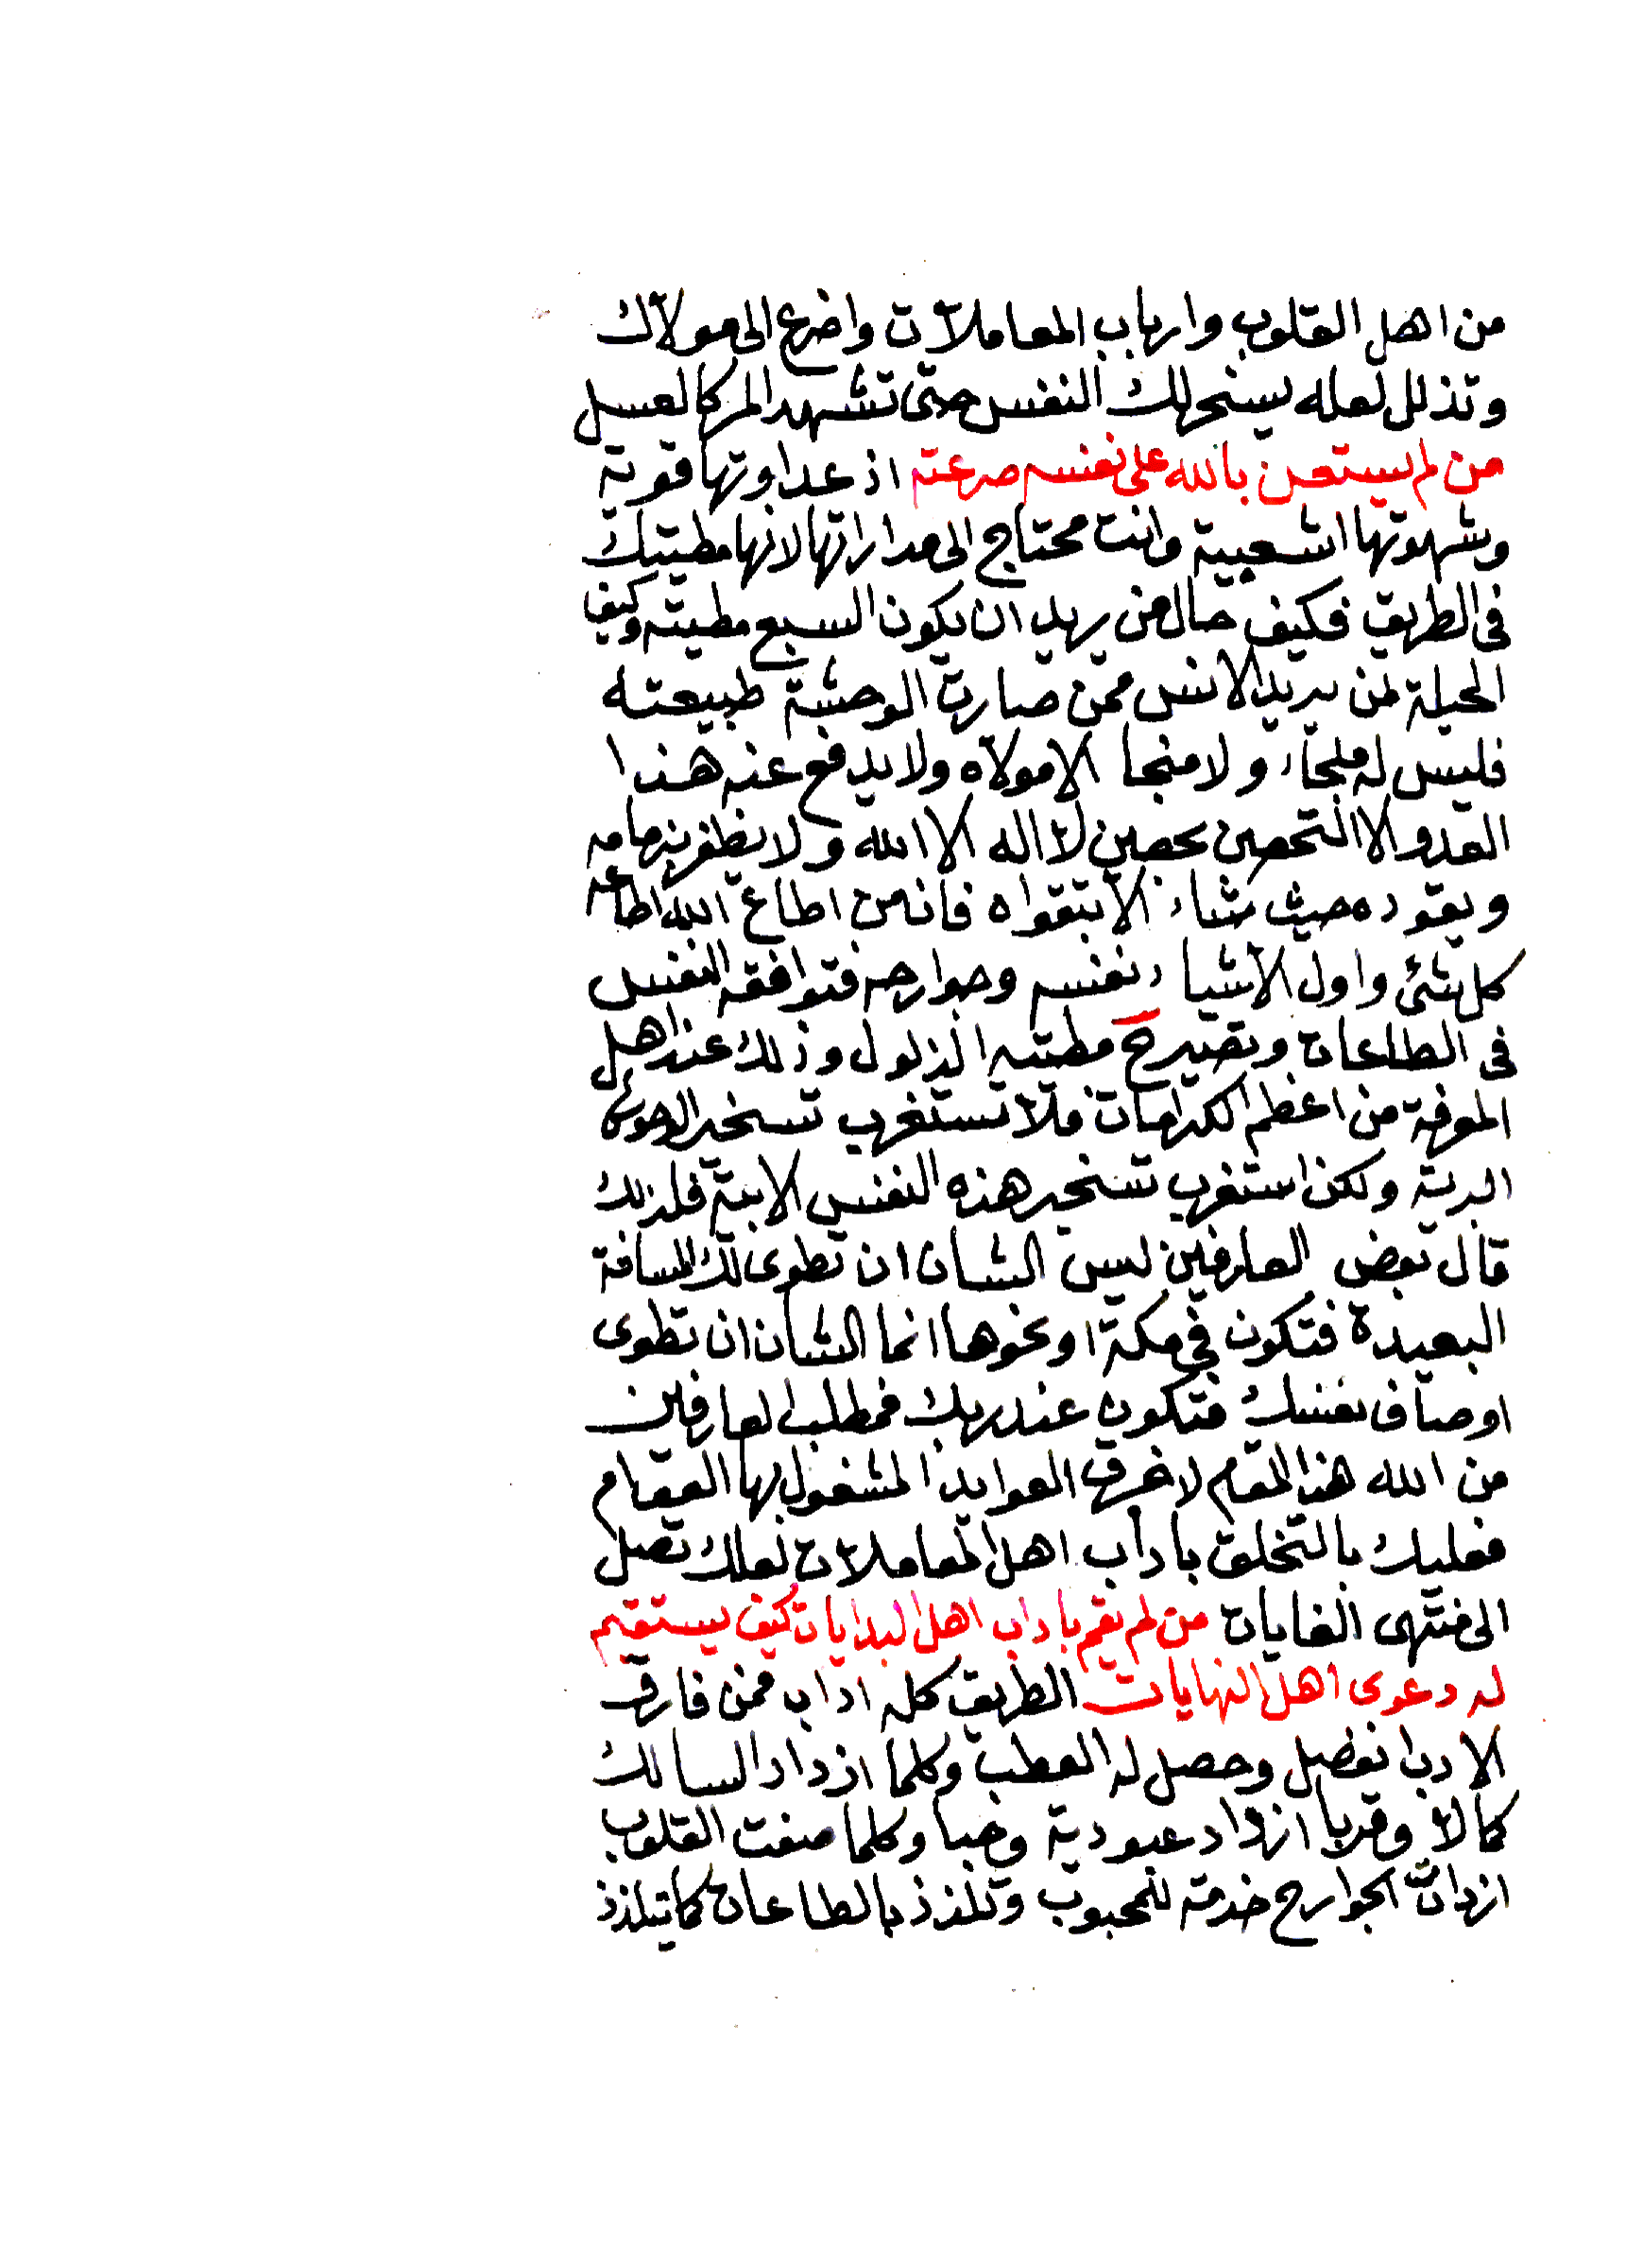 من اهل القلوب وارباب المعاملات واضرع الى مولاك
وتذلل لعله يسخر لك النفس حتى تشهد المر كالعسل
من لم يستعن بالله على نفسه صرعته اذ عداوتها قوية
وشهوتها اشعبية وانت محتاج الى مداراتها لانها مطيتك
فى الطريق فكيف حال من يريد ان يكون السبع مطيته وكيف
الحيلة لمن يريد الانس ممن صارت الوحشة طبيعته
فليس له ملجاء ولا منجا الا مولاه ولا يدفع عنه هذا
العدو الا التحصن بحصن لا اله الا الله ولا يظفر بزمامه
ويقوده حيث شاء الا بتقواه فانه من اطاع الله اطاعه
كل شئ واول الاشياء نفسه وجوارحه فتوافقه النفس
فى الطاعات وتصير ح مطيته الذلول وذلك عند اهل
المعرفة من اعظم الكرامات فلا تستغرب تسخير الوحوش
البرية ولكن استغرب تسخير هذه النفس الابية فلذلك
قال بعض العارفين ليس الشان ان تطوى لك المسافة
البعيدة فتكون فى مكة او نحوها انما الشان ان تطوى
اوصاف نفسك فتكون عند ربك فمطلب العارفين
من الله هذا المقام لا خرق العوايد المشغول بها العوام
فعليك بالتخلق باداب اهل المعاملات لعلك تصل
الى منتهى الغايات من لم يقم باداب اهل البدايات كيف يستقيم
له دعوى اهل النهايات الطريق كله اداب فمن فارق
الادب انفصل وحصل له العطب وكلما ازداد السالك
كمالا وقربا ازداد عبودية وحبا وكلما صفت القلوب
ازدادت الجوارح خدمة للمحبوب وتلذذ بالطاعات كما يتلذذ